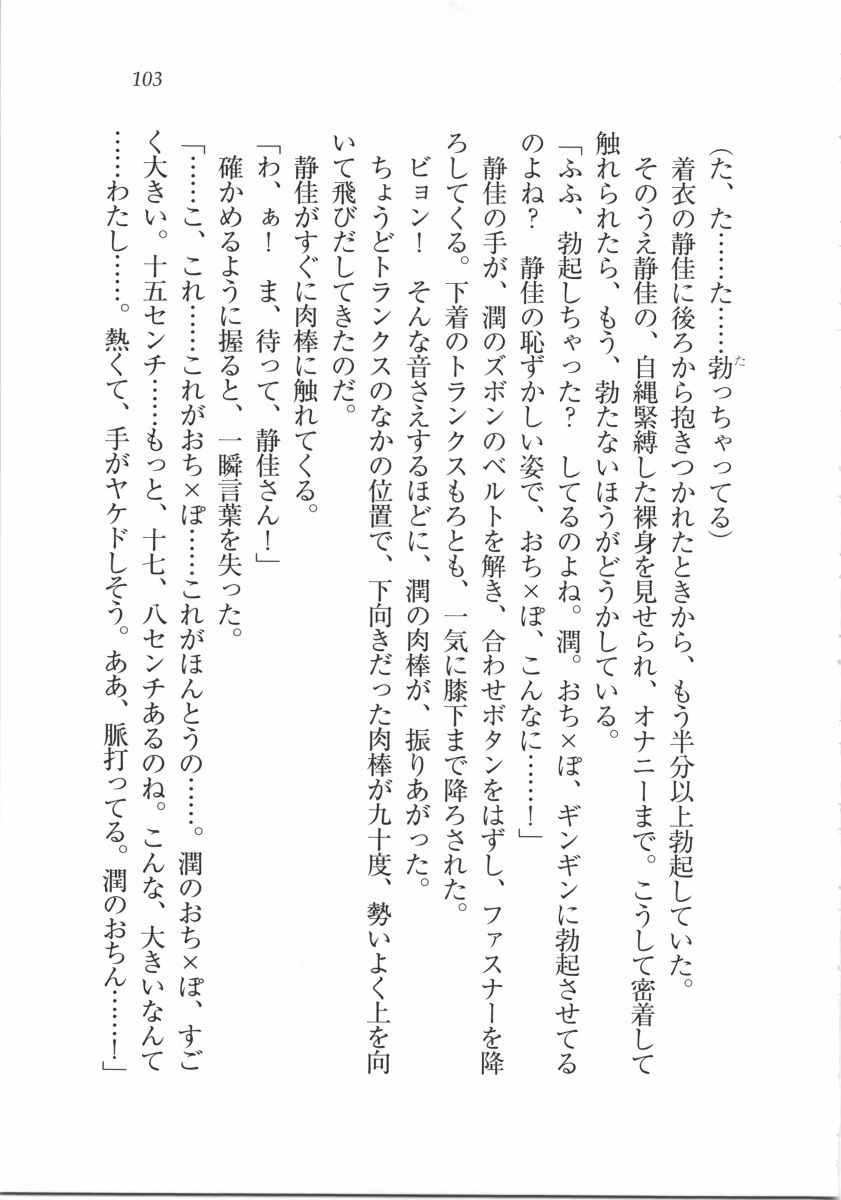 103
(た、た……た……勃っちゃってる)
着衣の静佳に後ろから抱きつかれたときから、もう半分以上勃起していた。
そのうえ静佳の、自縄緊縛した裸身を見せられ、オナニーまで。こうして密着して
触れられたら、もう、勃たないほうがどうかしている。
「ふふ、勃起しちゃった? してるのよね。潤。おち×ぽ、ギンギンに勃起させてる
のよね? 静佳の恥ずかしい姿で、おち×ぽ、こんなに……!」
静佳の手が、潤のズボンのベルトを解き、合わせボタンをはずし、ファスナーを降
ろしてくる。下着のトランクスもろとも、一気に膝下まで降ろされた。
ビョン! そんな音さえするほどに、潤の肉棒が、振りあがった。
ちょうどトランクスのなかの位置で、下向きだった肉棒が九十度、勢いよく上を向
いて飛びだしてきたのだ。
静佳がすぐに肉棒に触れてくる。
「わ、ぁ! ま、待って、静佳さん!」
確かめるように握ると、一瞬言葉を失った。
「……こ、これ……これがおち×ぽ……これがほんとうの……。潤のおち×ぽ、すご
く大きい。十五センチ……もっと、十七、八センチあるのね。こんな、大きいなんて
……わたし……。熱くて、手がヤケドしそう。ああ、脈打ってる。潤のおちん……!」